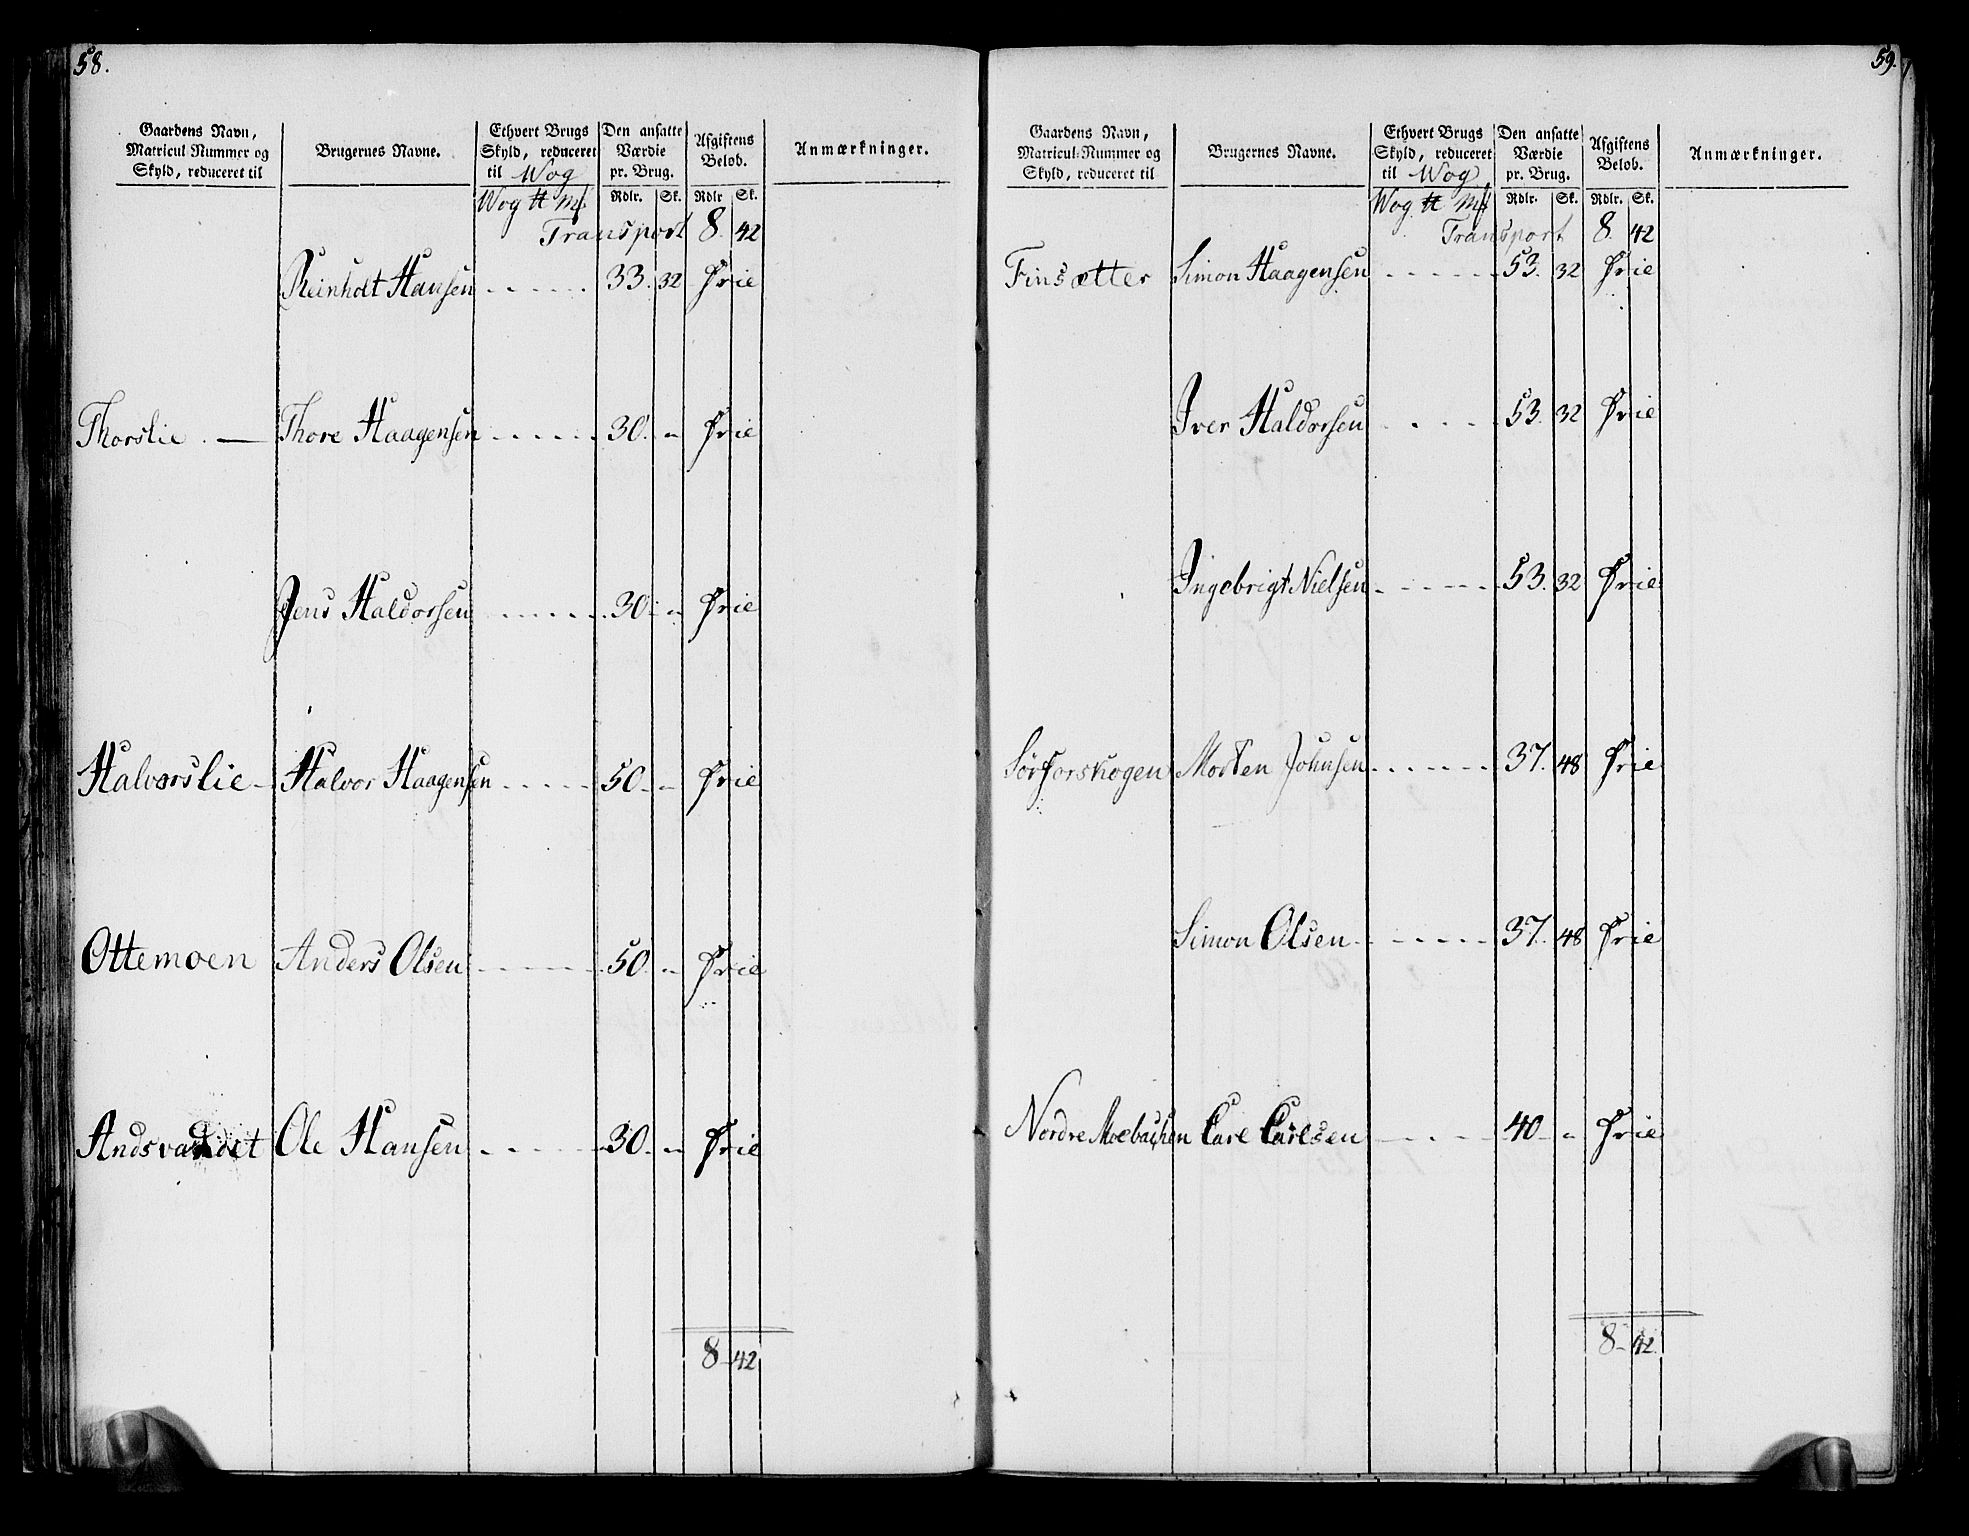 58.
Gaardens Navn, Matricul Nummer og Skyld, reduceret til | Brugernes Navne. | Ethvert Brugs Skyld, reduceret til Wog | Den ansatte Værdie pr. Brug. | Afgiftens Beløb. | Anmærkninger.
Wog ℔ Mk | Rdlr. | Sk. | Rdlr | Sk.
Transport 8. 42
Reinholt Hansen - - - - - 33. 32 Frie
Thorslie. — Thore Haagensen - - - - - 30. - Frie
Jens Haldorsen - - - - - 30. - Frie
Halvorslie - Halvor Haagensen - - - - - 50. - Frie
Ottemoen Anders Olsen - - - - - 50. - Frie
Andsvandet Ole Hansen - - - - - 30. - Frie
8 - 42
59.
Gaardens Navn, Matricul-Nummer og Skyld, reduceret til | Brugernes Navne. | Ethvert Brugs Skyld, reduceret til Wog | Den ansatte Værdie pr. Brug. | Afgiftens Beløb. | Anmærkninger.
Wog. ℔ Mk | Rdlr. | Sk. | Rdlr. | Sk.
Transport 8. 42
Finsætter Simon Haagensen - - - - - 53. 32 Frie
Iver Haldorsen - - - - 53. 32 Frie
Ingebrigt Nielsen - - - - - 53. 32 Frie
Sørforskogen Morten Johnsen - - - - - 37. 48 Frie
Simon Olsen - - - - - 37. 48 Frie
Nordre Moebakken Carl Carlsen - - - - 40 - - Frie
8 - 42.